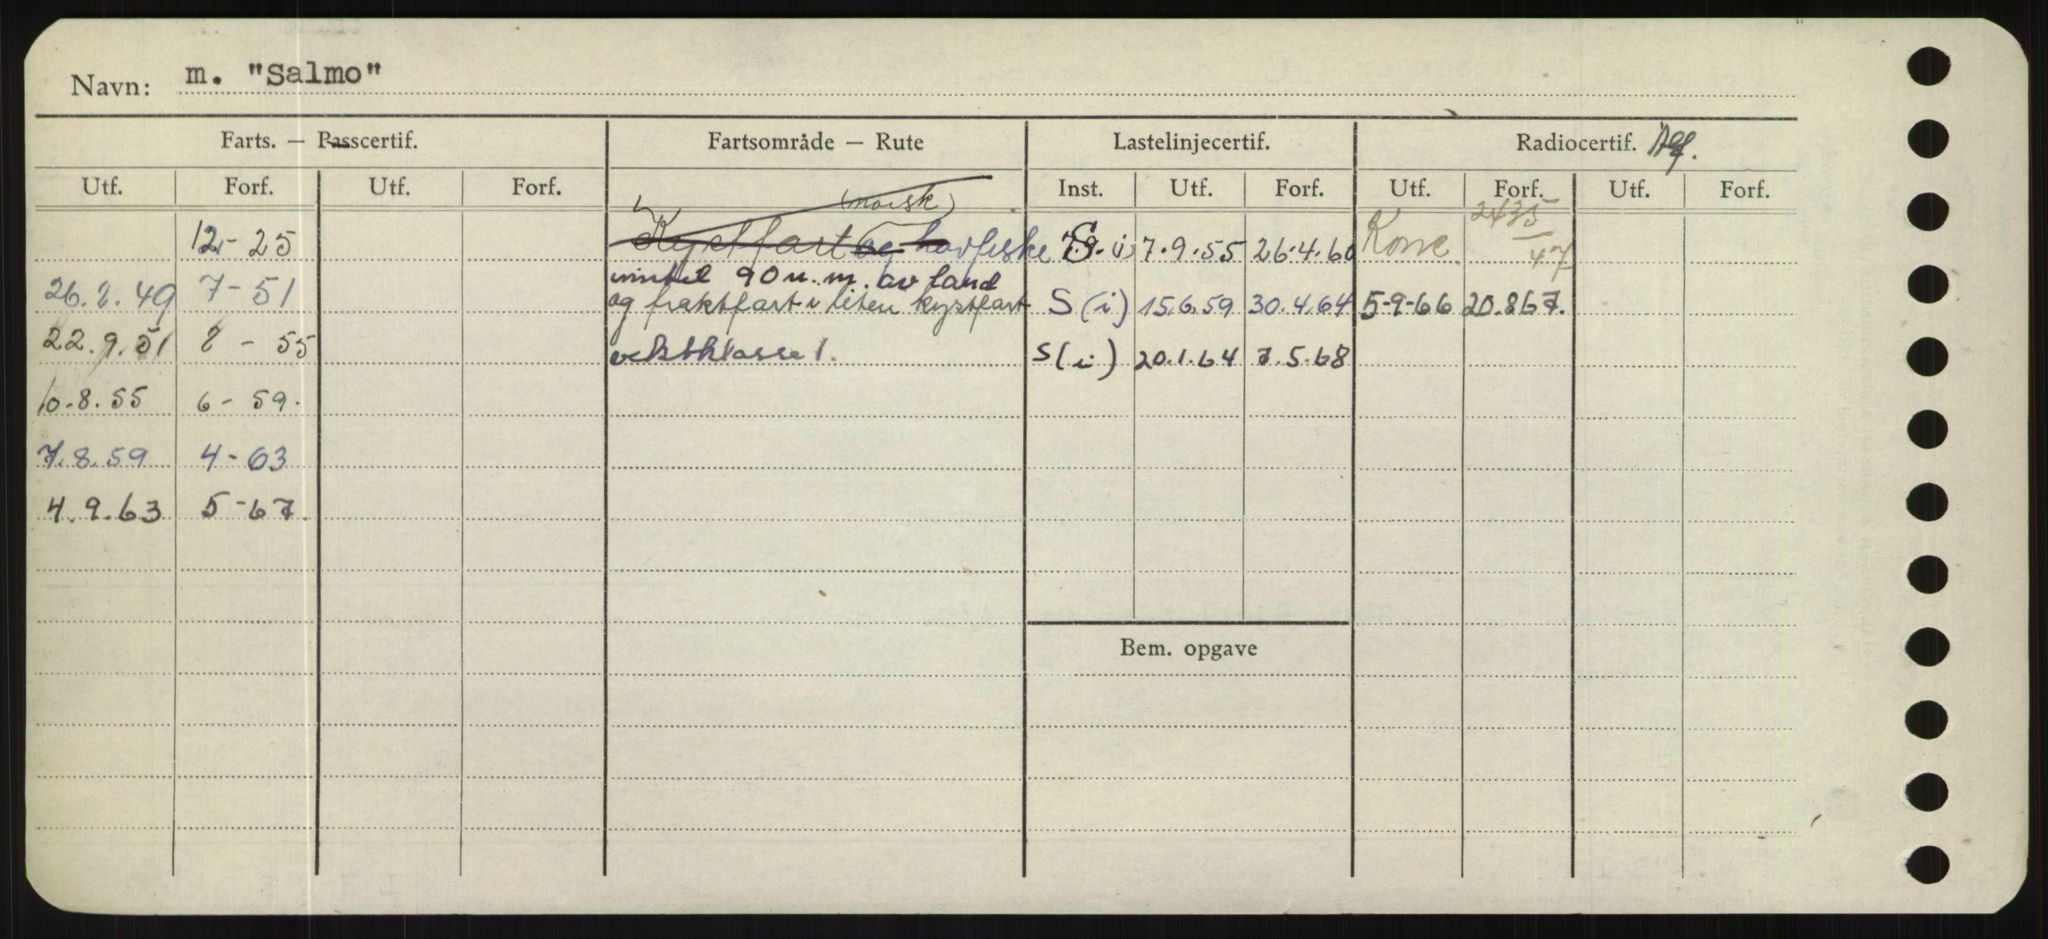 Navn: m. "Salmo"
Farts. — Passcertif. Fartsområde — Rute Lastelinjecertif. Radiocertif.
Utf. Forf. Utf. Forf. Inst. Utf. Forf. Utf. Forf. Utf. Forf.
(norsk) 2435
12-25 Kystfart og havfiske S. i 7.9.55 26.4.60 47
inntil 90 n.m. av land
26.2.49 7-51 og fraktfart i liten kystfart S (i) 15.6.59 30.4.64 5-9-66 20.867.
22.9.51 8-55 vektklasse 1. S (i) 20.1.64 7.5.68
10.8.55 6-59.
7.8.59 4-63
4.9.63 5-67.
Bem. opgave